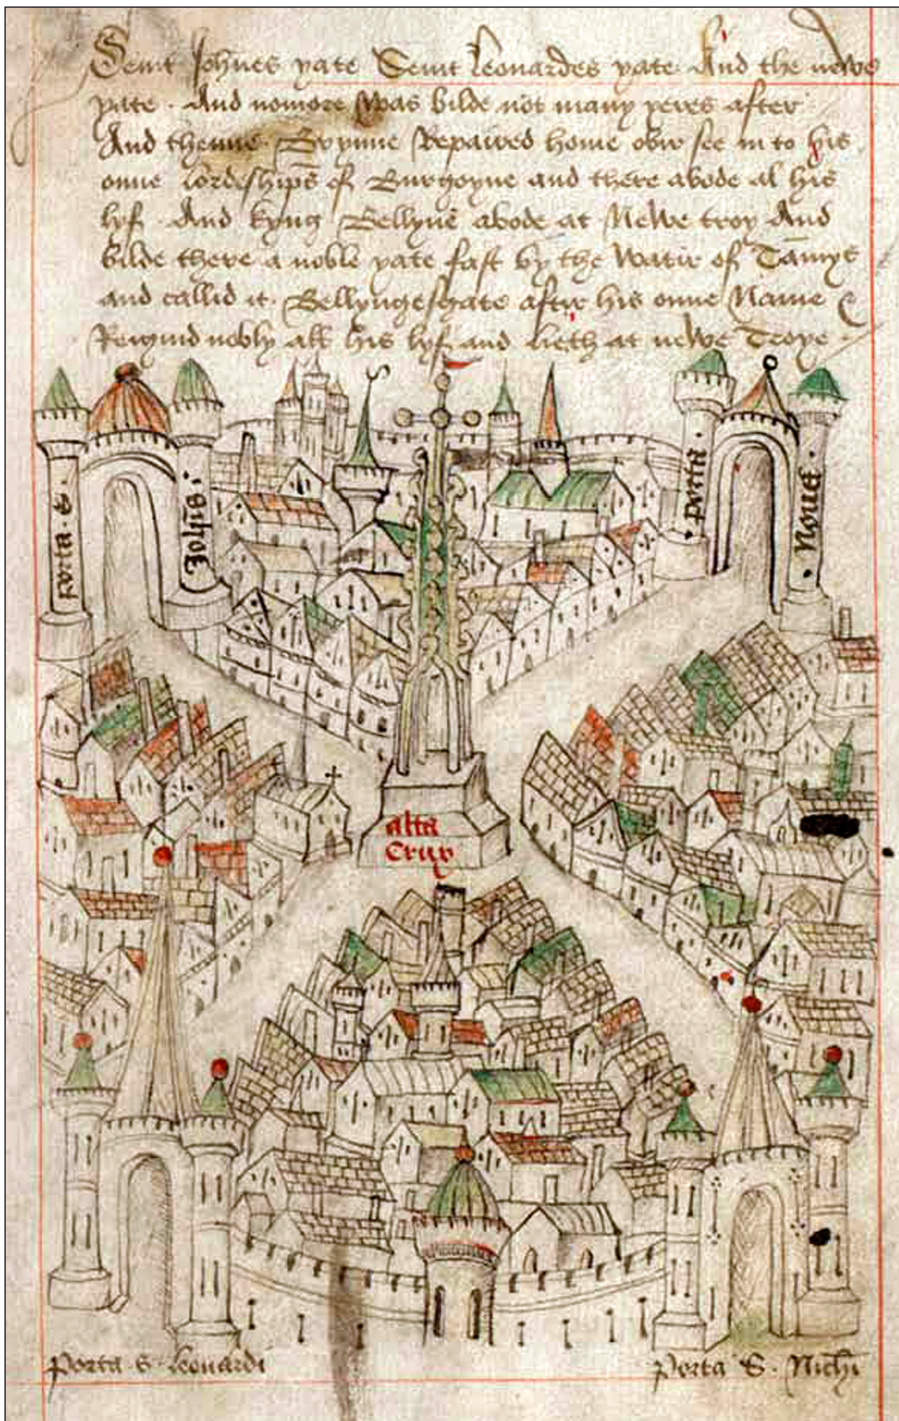 Seint Johnes yate Seint Leonardes yate And the newe
yate . And nomore was bilde not many yeres after
And thenne Brynne Repaired home ovir see in to his
onne lordeships of Burgoyne and there abode al his
lyf . And kyng Bellyne abode at Newe troy And
bilde there a noble yate fast by the Watir of Tamys
and callid it Bellyngesgate aftir his onne Name &
Reignid nobly all his lyf and lieth at newe Troye .
porta . S . Johis .
porta . Noua .
alta
Crux
porta S . Leonardi
porta S . Nichi